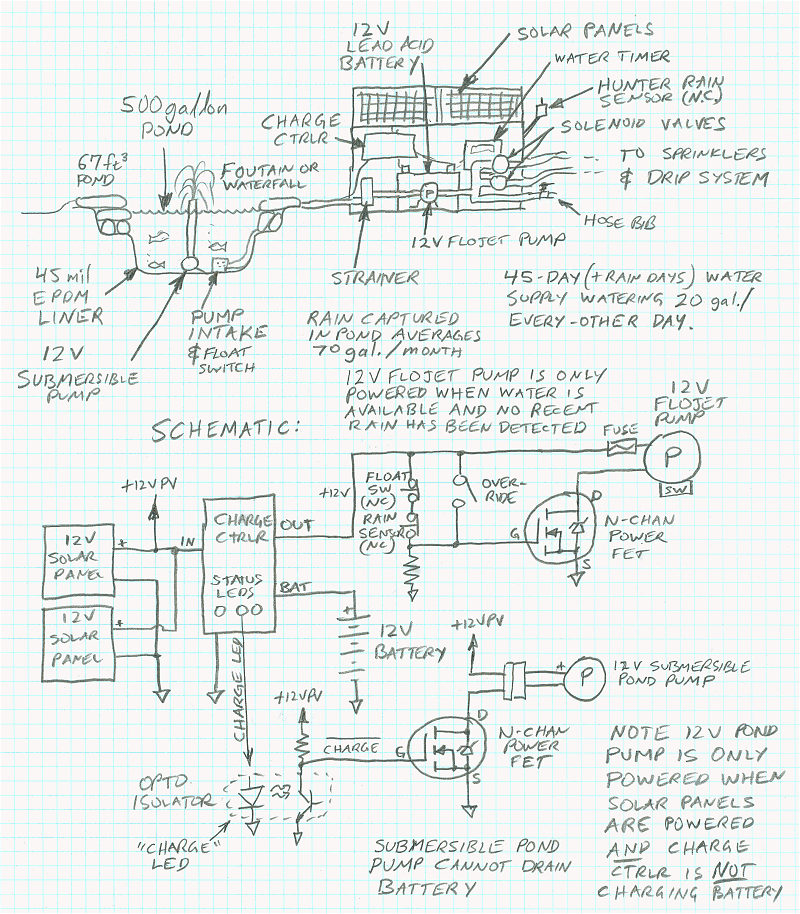 12V
LEAD ACID
BATTERY
SOLAR PANELS
WATER TIMER
HUNTER RAIN
SENSOR (N.C.)
SOLENOID VALVES
500 gallon
POND
CHARGE
CTRLR
67 ft³
POND
FOUTAIN OR
WATERFALL
TO SPRINKLERS
& DRIP SYSTEM
P
HOSE BIB
12V FLOJET PUMP
STRAINER
45 mil
EPDM
LINER
PUMP
INTAKE
& FLOAT
SWITCH
12V
SUBMERSIBLE
PUMP
RAIN CAPTURED
IN POND AVERAGES
70 gal./MONTH
45-DAY (+RAIN DAYS) WATER
SUPPLY WATERING 20 gal./
EVERY-OTHER DAY.
12V FLOJET PUMP IS ONLY
POWERED WHEN WATER IS
AVAILABLE AND NO RECENT
RAIN HAS BEEN DETECTED
SCHEMATIC:
12V
FLOJET
PUMP
FUSE
P
SW
+12V
FLOAT
SW
(NC)
RAIN
SENSOR
(NC)
OVER-
RIDE
G
D
S
N-CHAN
POWER
FET
+12VPV
12V
SOLAR
PANEL
+
IN
CHARGE
CTRLR
OUT
STATUS
LEDS
BAT
12V
SOLAR
PANEL
+
+
12V
BATTERY
CHARGE LED
+12VPV
+12VPV
+
P
12V SUBMERSIBLE
POND PUMP
CHARGE
G
D
S
N-CHAN
POWER
FET
OPTO
ISOLATOR
"CHARGE"
LED
SUBMERSIBLE POND
PUMP CANNOT DRAIN
BATTERY
NOTE 12V POND
PUMP IS ONLY
POWERED WHEN
SOLAR PANELS
ARE POWERED
AND CHARGE
CTRLR IS NOT
CHARGING BATTERY